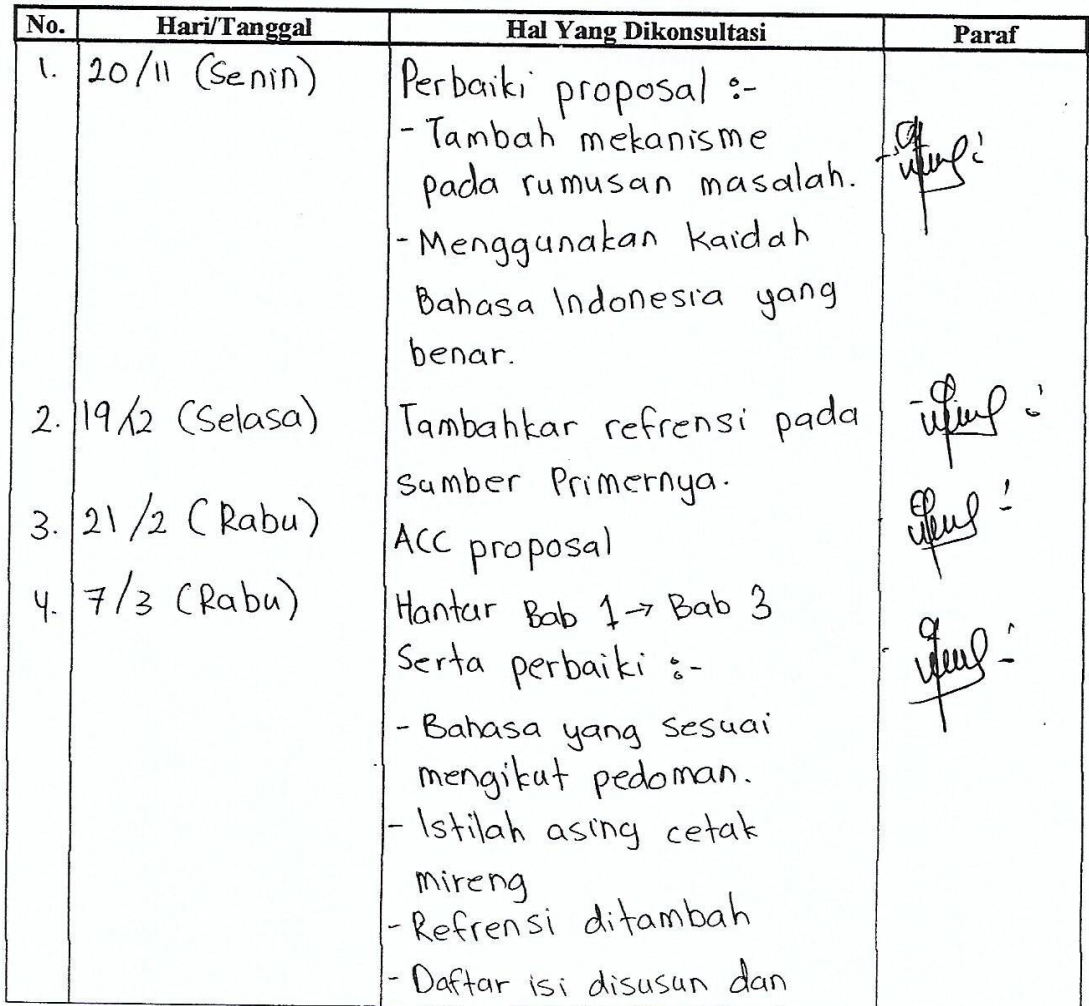 No. Hari/Tanggal Hal Yang Dikonsultasi Paraf
1. 20/11 (Senin) Perbaiki proposal :-
- Tambah mekanisme
pada rumusan masalah.
- Menggunakan Kaidah
Bahasa Indonesia yang
benar.
2. 19/12 (Selasa) Tambahkar refrensi pada
sumber Primernya.
3. 21/2 (Rabu) ACC proposal
4. 7/3 (Rabu) Hantar Bab 1 → Bab 3
Serta perbaiki :-
- Bahasa yang sesuai
mengikut pedoman.
- Istilah asing cetak
mireng
- Refrensi ditambah
- Daftar isi disusun dan